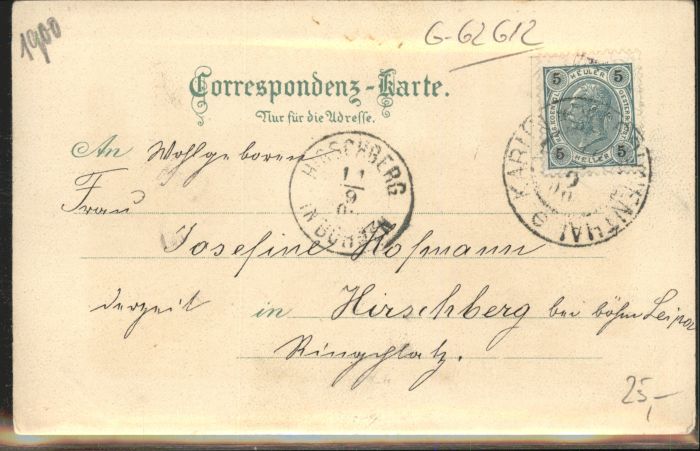 1900
G-62612
Correspondenz-Karte.
Nur für die Adresse.
5 HELLER 5
5 HELLER 5
HIRSCHBERG
11
9
IN BÖHMEN
KAROLINENTHAL
An Wohlgeboren
Frau
Josefine Hofmann
derzeit in Hirschberg bei böhm Leipa
Ringplatz.
25,-